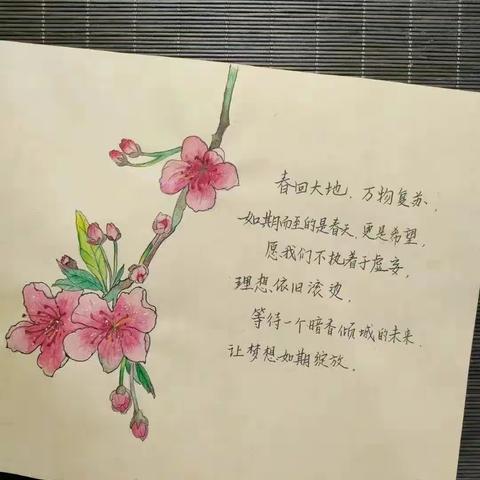 春回大地、万物复苏,
如期而至的是春天,更是希望,
愿我们不执着于虚妄,
理想依旧滚烫,
等待一个暗香倾城的未来.
让梦想如期绽放.